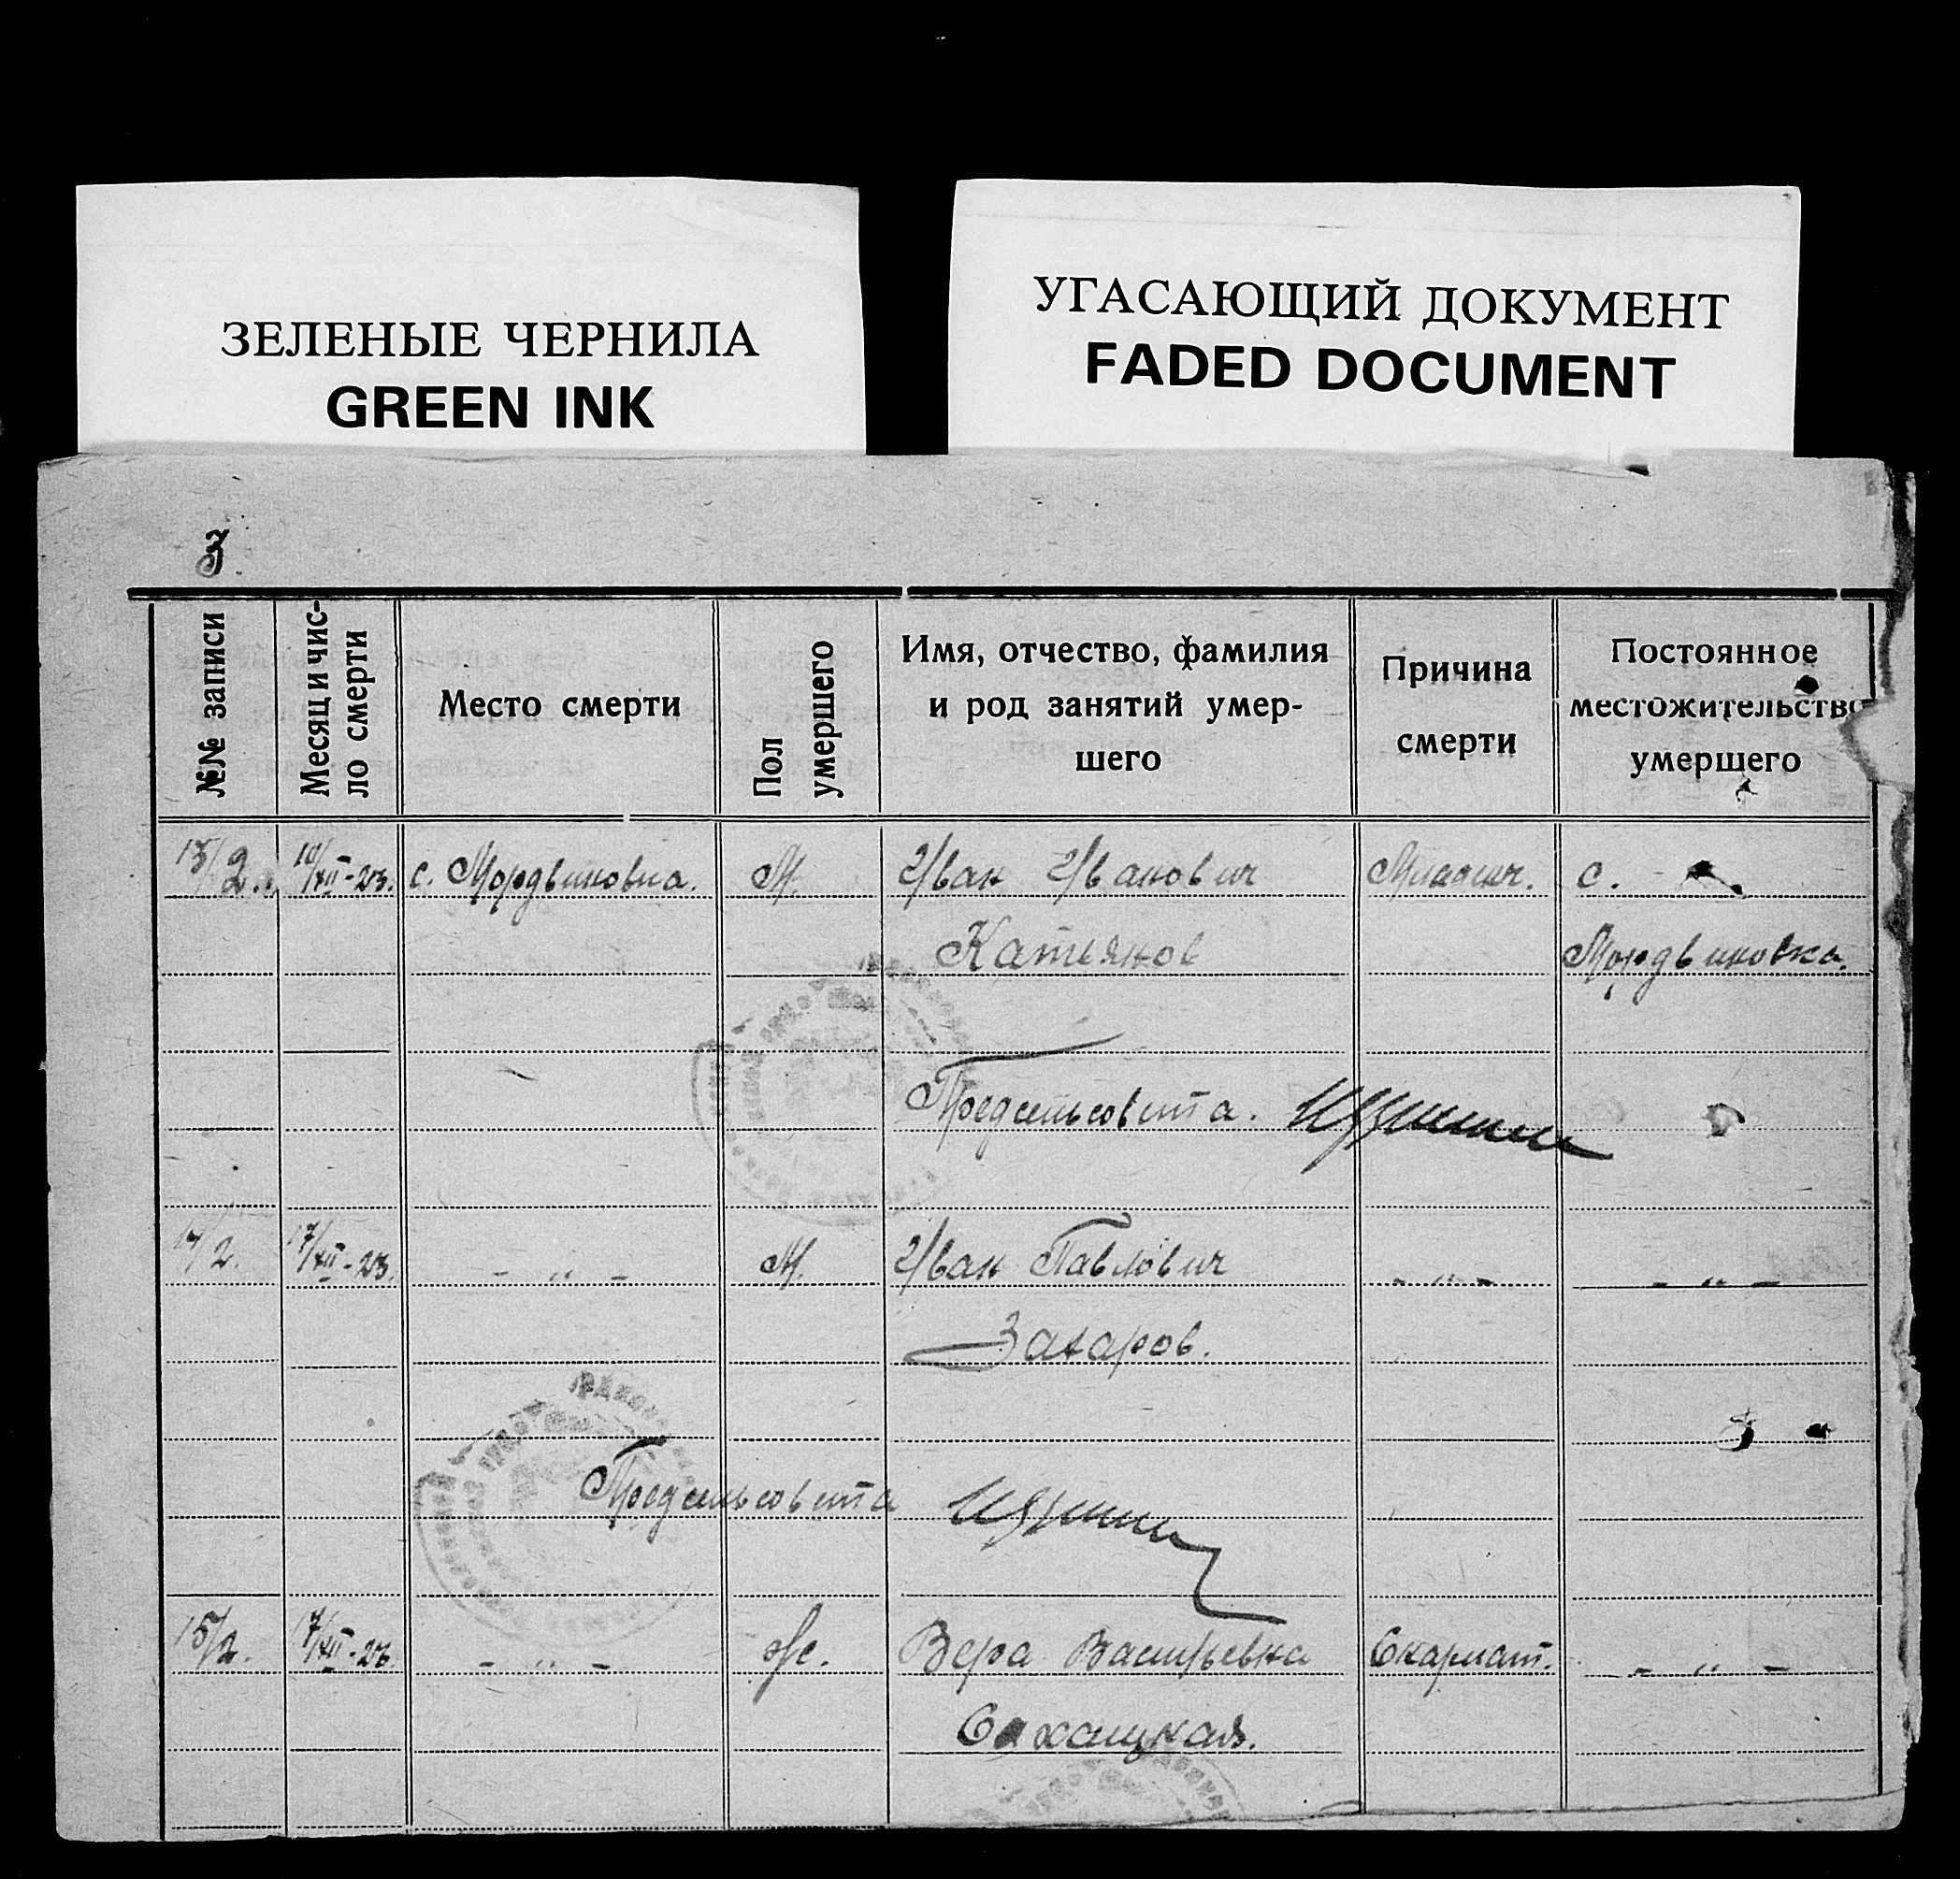 ЗЕЛЕНЫЕ ЧЕРНИЛА
GREEN INK
УГАСАЮЩИЙ ДОКУМЕНТ
FADED DOCUMENT
№№ записи
Месяц и чис-
ло смерти
Место смерти
Пол
умершего
Имя, отчество, фамилия
и род занятий умер-
шего
Причина
смерти
Постоянное
местожительство
умершего
13/2. 10/XII-23. с. Мордвиновка. М. Иван Иванович Младенч. с.
Катьянов Мордвиновка.
Предсельсовета.
14/2. 17/XII-23. - " - М. Иван Павлович - " - - " -
Захаров.
Предсельсовета
15/2. 17/XII-23. - " - Ж. Вера Васильевна Скарлат. - " -
Сахацкая.